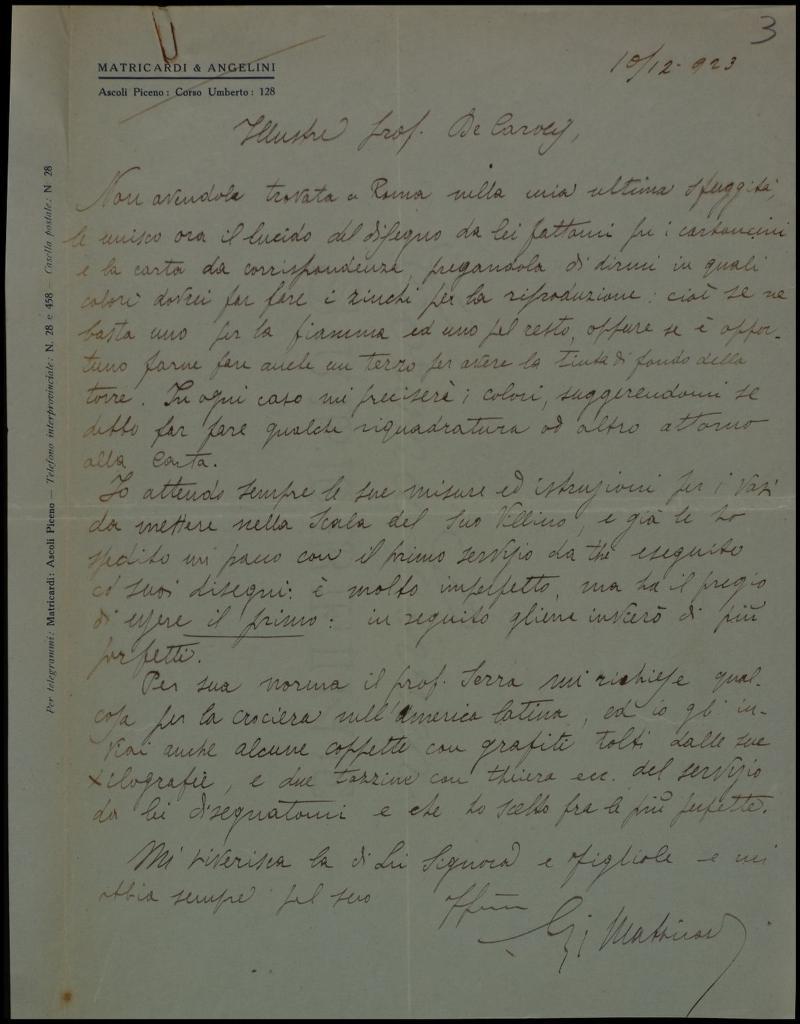 3
MATRICARDI & ANGELINI
Ascoli Piceno: Corso Umberto: 128
10/12-923
Per telegrammi: Matricardi: Ascoli Piceno — Telefono interprovinciale: N. 28 e 458 — Casella postale: N 28
Illustre prof. De Carolis,
Non avendola trovata a Roma nella mia ultima sfuggita,
le unisco ora il lucido del disegno da lei fattomi per i cartoncini
e la carta da corrispondenza, pregandola di dirmi in quali
colori dovrei far fare i zinchi per la riproduzione: cioè se ne
basta uno per la fiamma ed uno pel resto, oppure se è oppor-
tuno farne fare anche un terzo per avere la tinta di fondo della
torre. In ogni caso mi preciserà i colori, suggerendomi se
debbo far fare qualche riquadratura od altro attorno
alla carta.
Io attendo sempre le sue misure ed istruzioni per i vasi
da mettere nella Scala del Suo Villino, e già le ho
spedito un pacco con il primo servizio da the eseguito
co' suoi disegni: è molto imperfetto, ma ha il pregio
di essere il primo: in seguito gliene invierò di più
perfetti.
Per sua norma il prof. Serra mi richiese qual-
cosa per la crociera nell'America latina, ed io gli in-
viai anche alcune coppette con grafiti tolti dalle sue
xilografie, e due tazzine con theiera ecc. del servizio
da lei disegnatomi e che ho scelto fra le più perfette.
Mi riverisca la di Lei Signora e figliole e mi
abbia sempre pel suo
G. Matricardi